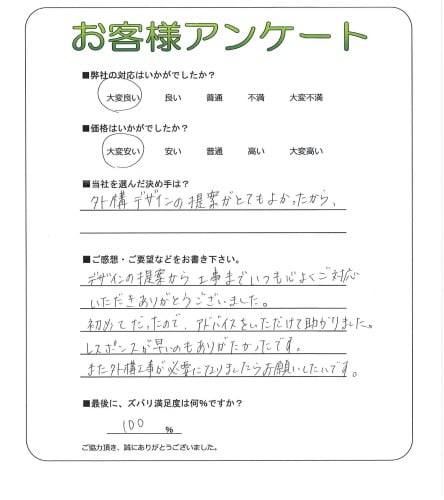 お客様アンケート
■弊社の対応はいかがでしたか?
大変良い 良い 普通 不満 大変不満
■価格はいかがでしたか?
大変安い 安い 普通 高い 大変高い
■当社を選んだ決め手は?
外構デザインの提案がとてもよかったから、
■ご感想・ご要望などをお書き下さい。
デザインの提案から工事までいつも心よくご対応
いただきありがとうございました。
初めてだったので、アドバイスをいただけて助かりました。
レスポンスが早いのもありがたかったです。
また外構工事が必要になりましたらお願いしたいです。
■最後に、ズバリ満足度は何%ですか?
100 %
ご協力頂き、誠にありがとうございました。